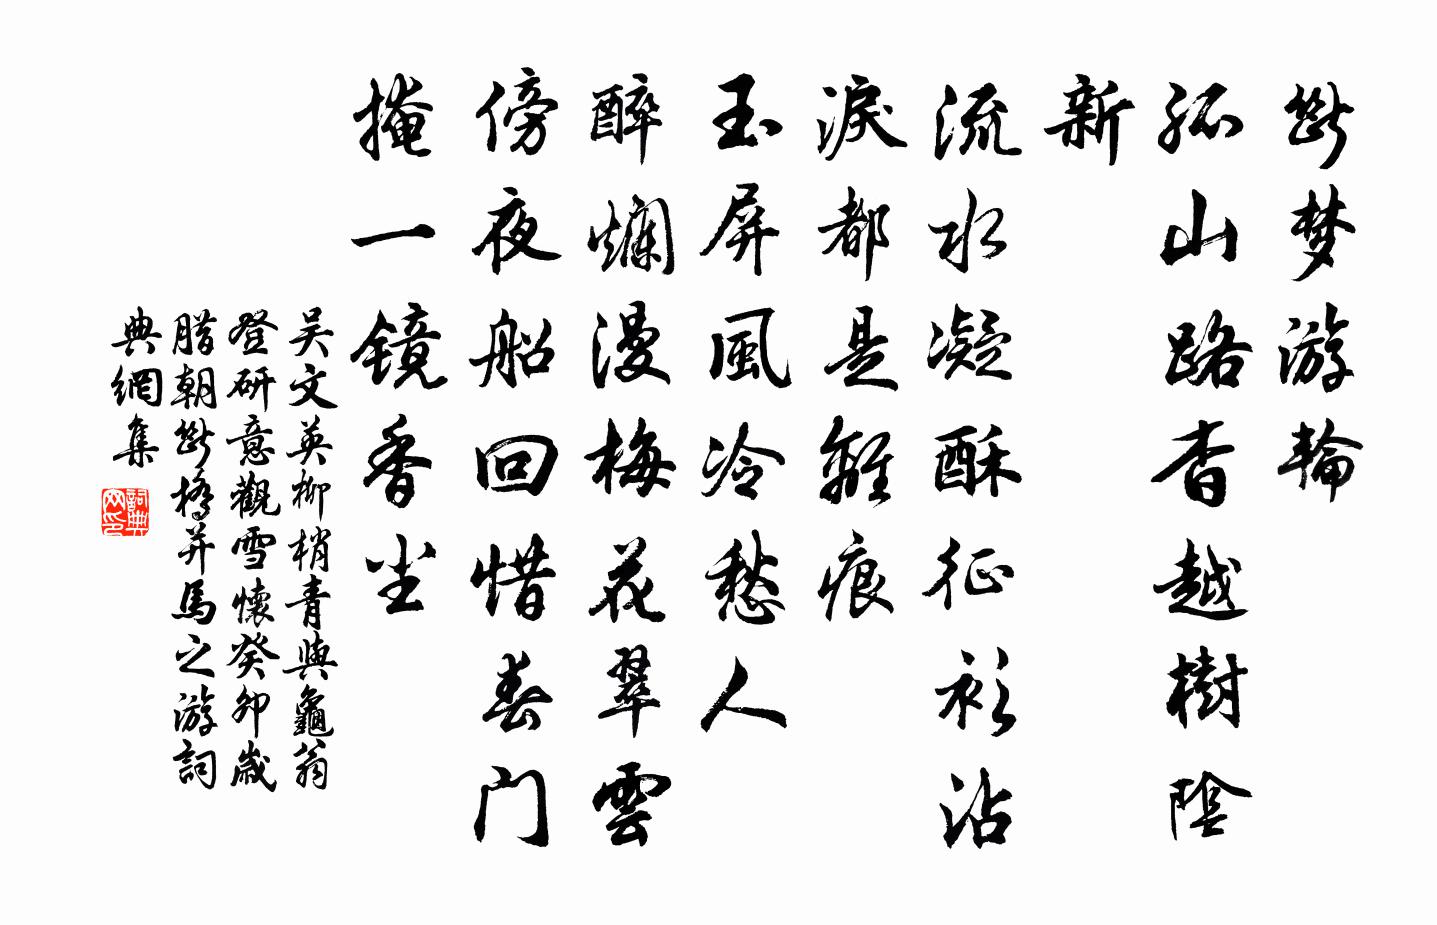 斷梦游輪
孤山路杳越樹陰
新
流水凝酥征衫沾
淚都是離痕
玉屏風冷愁人
醉爛漫梅花翠雲
傍夜船回惜春门
掩一镜香尘
吴文英柳梢青與龜翁
登研意觀雪懷癸卯歲
腊朝斷橋并馬之游詞
典網集
詞典
网印